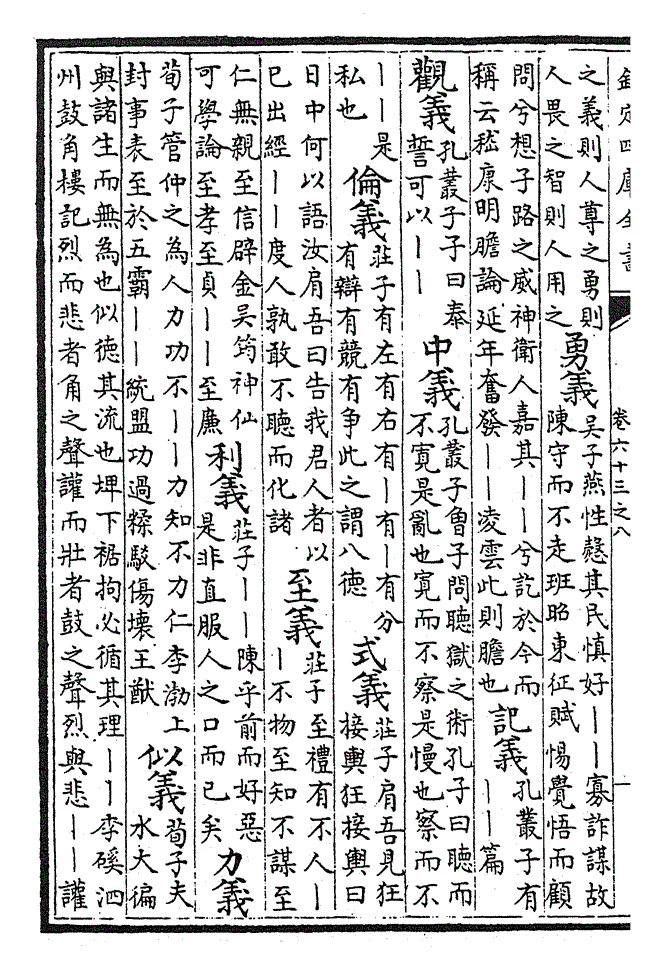 欽定四庫全書
卷六十三之八
一
之義則人尊之勇則
人畏之智則人用之
勇義
吳子燕性慤其民慎好丨丨寡詐謀故
陳守而不走班昭東征賦惕覺悟而顧
問兮想子路之威神衛人嘉其丨丨兮訖於今而
稱云嵇康明膽論延年奮發丨丨凌雲此則膽也
記義
孔叢子有
丨丨篇
觀義
孔叢子子曰泰
誓可以丨丨
中義
孔叢子魯子問聽獄之術孔子曰聽而
不寛是亂也寛而不察是慢也察而不
丨丨是
私也
倫義
莊子有左有右有丨有丨有分
有辯有競有争此之謂八德
式義
莊子肩吾見狂
接輿狂接輿曰
日中何以語汝肩吾曰告我君人者以
已出經丨丨度人孰敢不聽而化諸
至義
莊子至禮有不人丨
丨不物至知不謀至
仁無親至信辟金吳筠神仙
可學論至孝至貞丨丨至廉
利義
莊子丨丨陳乎前而好惡
是非直服人之口而已矣
力義
荀子管仲之為人力功不丨丨力知不力仁李渤上
封事表至於五霸丨丨統盟功過糅駁傷壞王猷
似義
荀子夫
水大徧
與諸生而無為也似德其流也埤下裾拘必循其理丨丨李磎泗
州鼓角樓記烈而悲者角之聲讙而壯者鼓之聲烈與悲丨丨讙